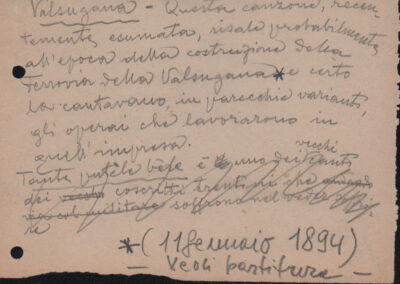 Valsugana - Questa canzone, recen-
temente esumata, risale probabilmente
all'epoca della costruzione della
ferrovia della Valsugana * e certo
la cantavano, in parecchie varianti,
gli operai che lavorarono in
quell'impresa.
vecchi
Tante putèle bèle è uno dei canti
dei vecchi coscritti trentini che
militare soffrono nel
*(11 Gennaio 1894)
- Vedi partitura -